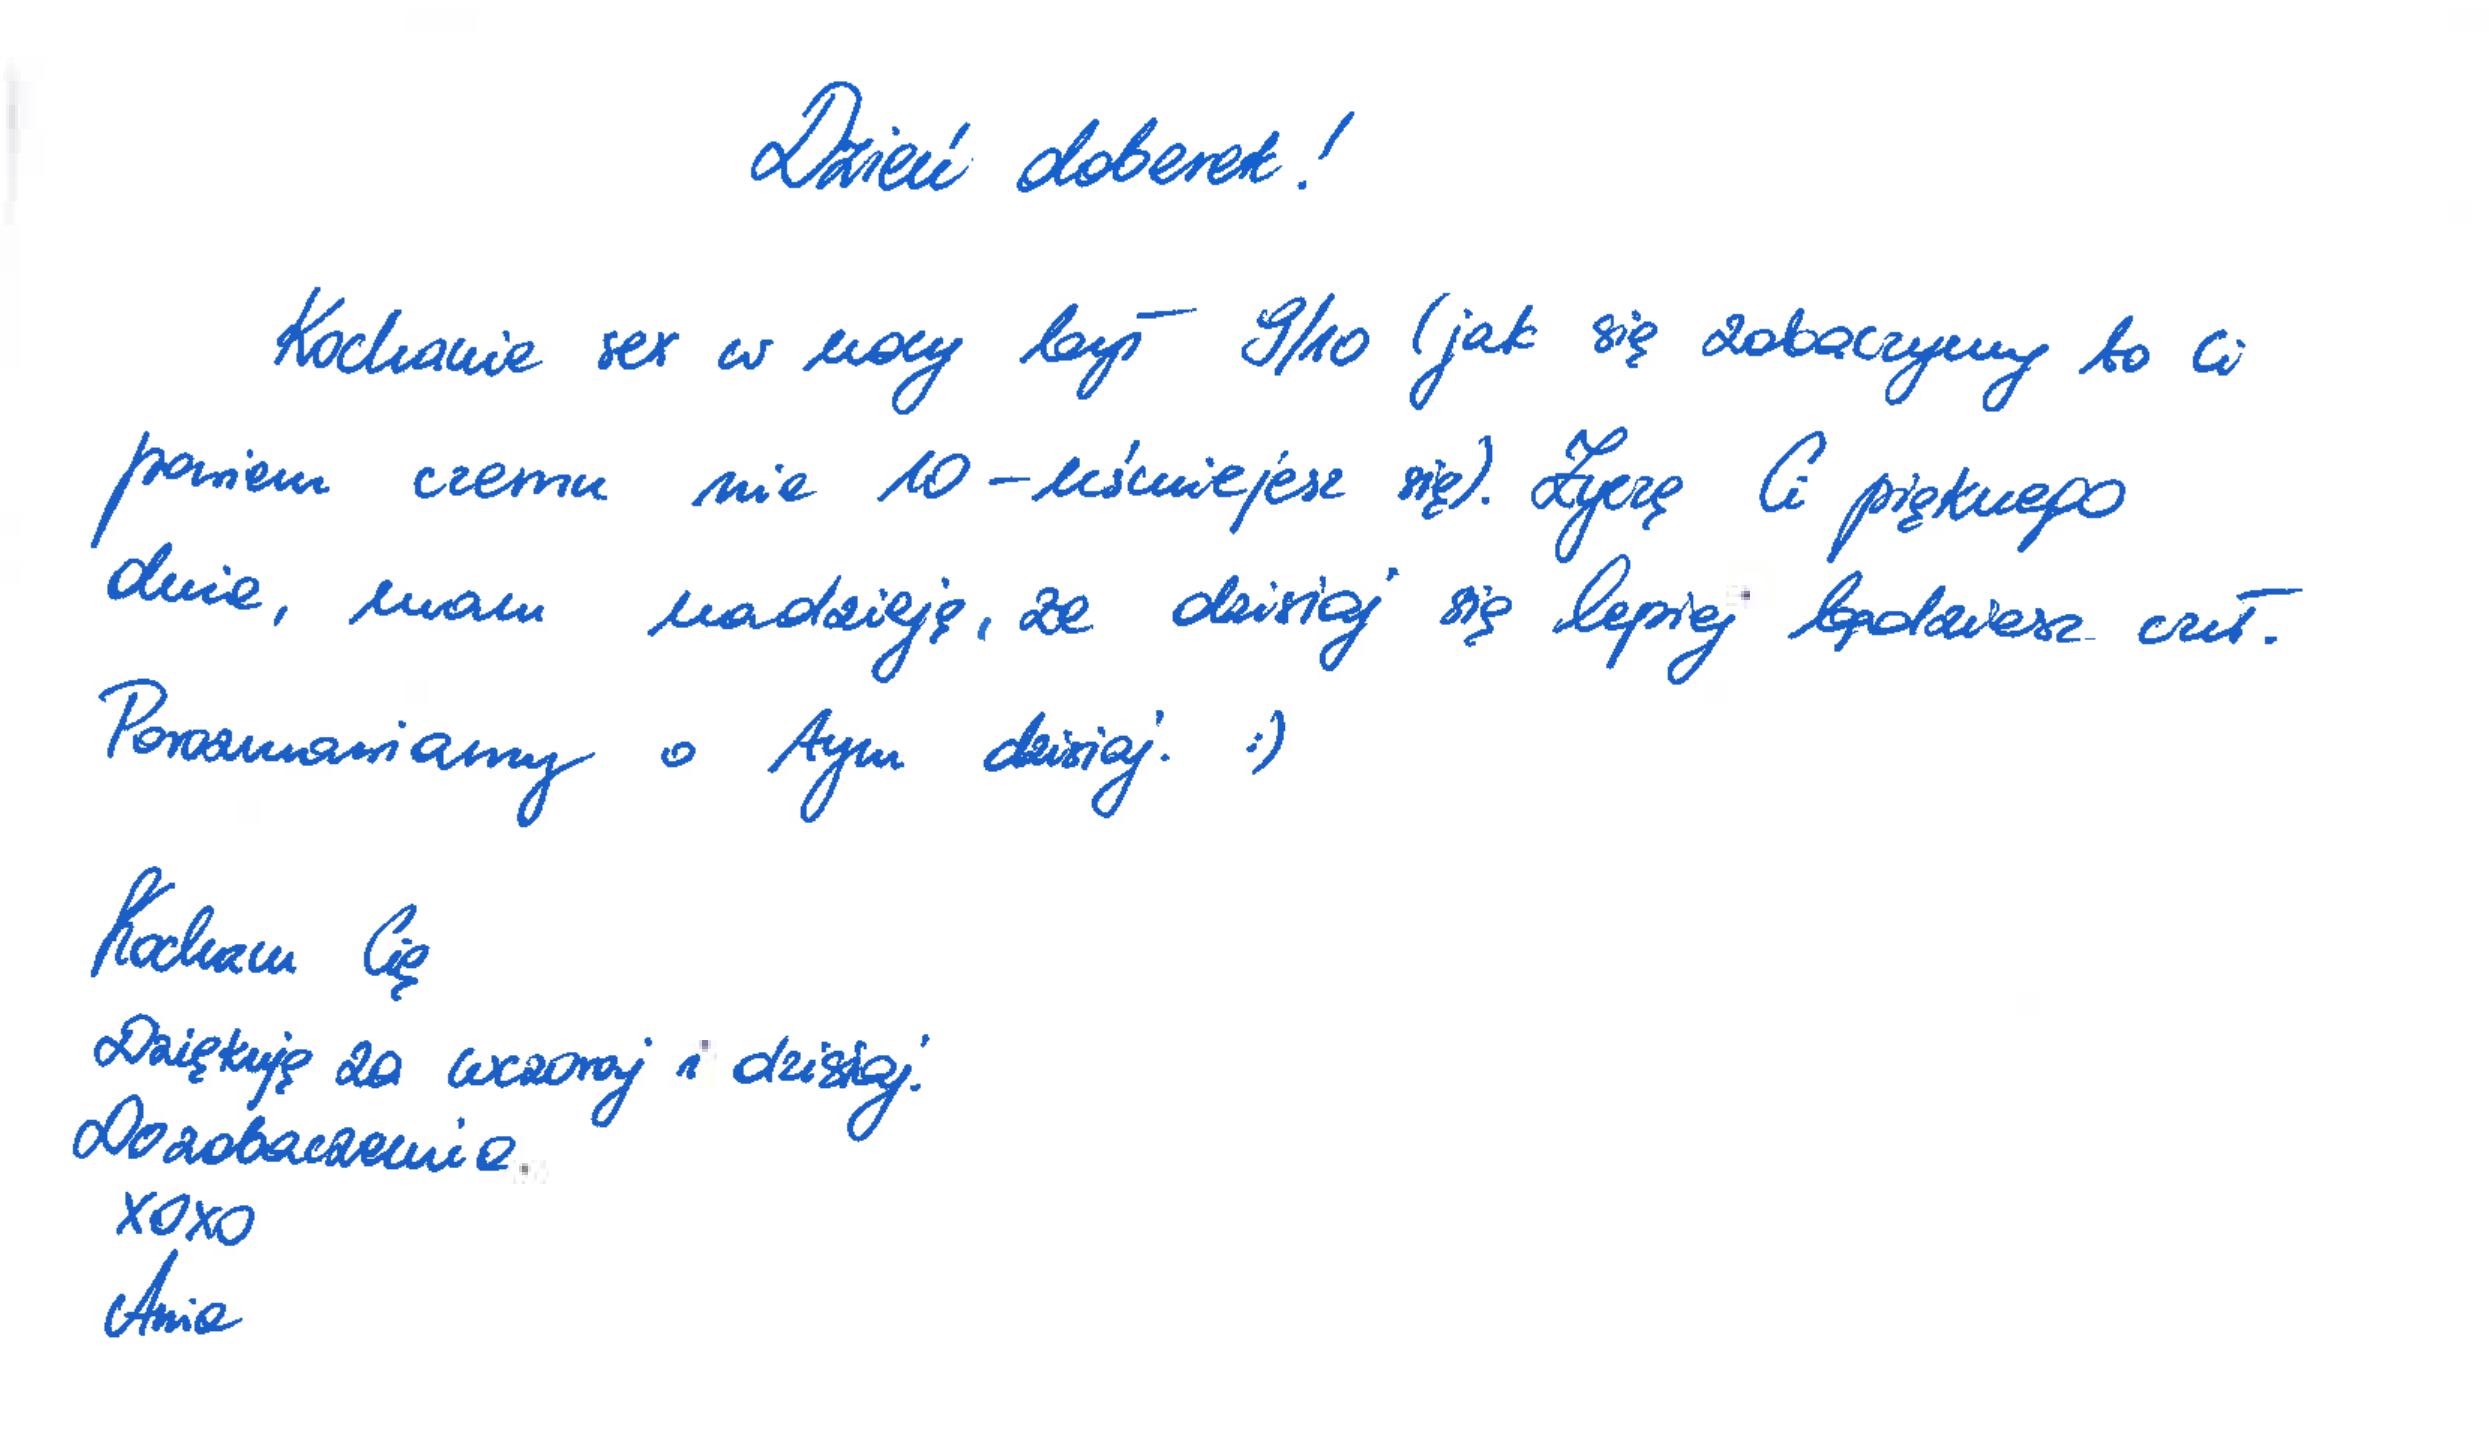 Dzień doberek!
Kochanie sex w nocy był 9/10 (jak się zobaczymy to Ci
powiem czemu nie 10 - uśmiejesz się). Życzę Ci pięknego
dnia, mam nadzieję, że dzisiaj się lepiej będziesz czuł.
Porozmawiamy o tym dzisiaj. :)
Kocham Cię
Dziękuję za wczoraj i dzisiaj.
Do zobaczenia.
xoxo
Ania